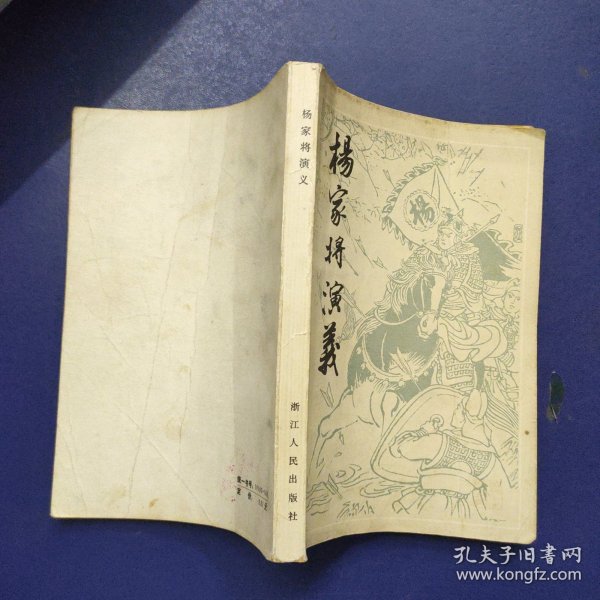 杨家将演义
浙江人民出版社
楊家将演義
楊
统一书号：
定价：
孔夫子旧书网
www.kongfz.com